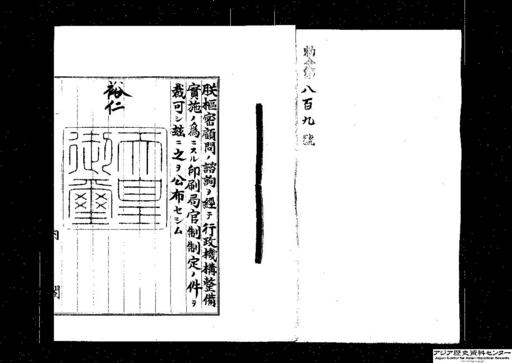 勅令第八百九號
朕樞密顧問ノ諮詢ヲ經テ行政機構整備
實施ノ爲ニスル印刷局官制制定ノ件ヲ
裁可シ玆ニ之ヲ公布セシム
裕仁
天皇
御璽
内閣
アジア歴史資料センター
Japan Center for Asian Historical Records